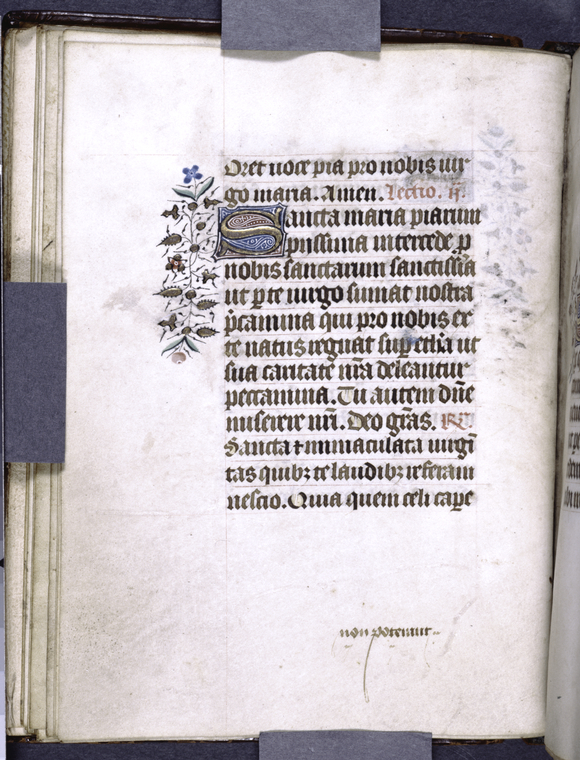 Oret voce pia pro nobis vir
go maria. Amen. Lectio. ij.
Sancta maria piarum
piissima intercede p̱
nobis sanctarum sanctissīa
ut p̱ te virgo sumat nostra
p̄camina qui pro nobis ex
te natus regnat sup̱ ethr̄a ut
sua caritate nr̄a deleantur
peccamina. Tu autem dn̄e
miserere nr̄i. Deo gr̄as. R̸.
Sancta ⁊ immaculata virgī
tas quibꝫ te laudibꝫ referam
nescio. Quia quem celi cap̱e
non poterant..